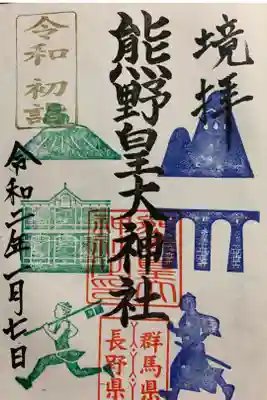 境拝
熊野皇大神社
令和 初詣
令和二年一月七日
群馬県
長野県